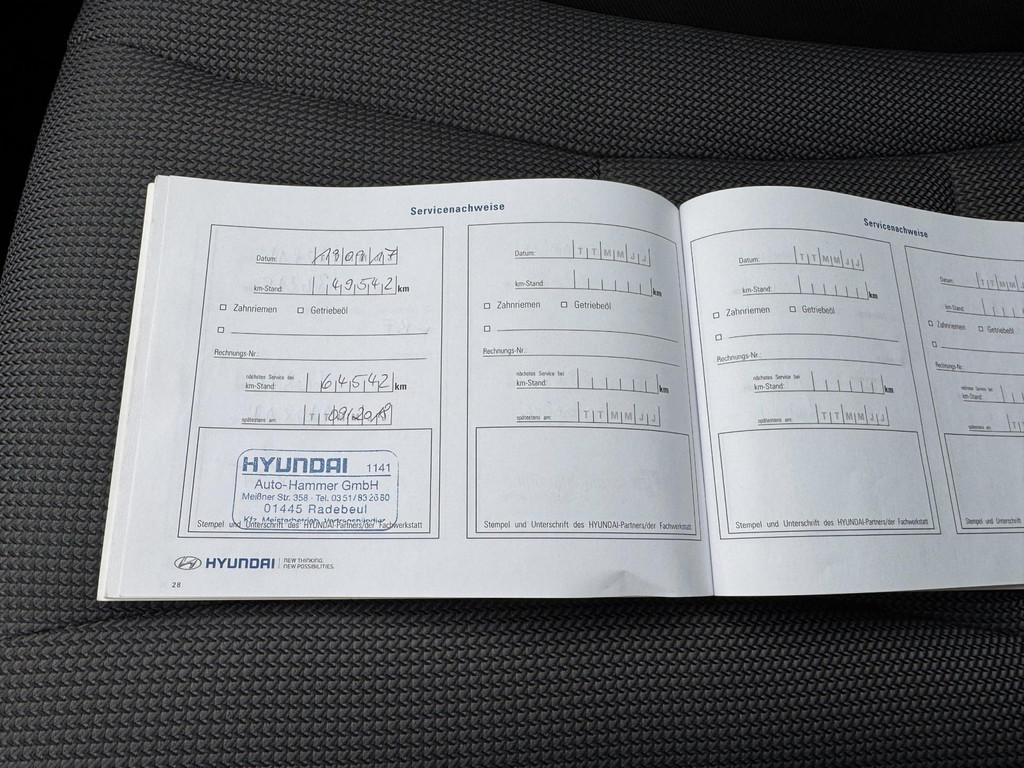 Servicenachweise
Datum: 13 09 17
km-Stand: 49542 km
Zahnriemen Getriebeöl
Rechnungs-Nr.:
nächstes Service bei
km-Stand: 64542 km
spätestens am: 09.2018
HYUNDAI 1141
Auto-Hammer GmbH
Meißner Str. 358 · Tel. 0351/83
01445 Radebeul
Kfz-Meisterbetrieb, Vertragshändler
Stempel und Unterschrift des HYUNDAI-Partners/der Fachwerkstatt
Datum: T T M M J J
km-Stand: km
Zahnriemen Getriebeöl
Rechnungs-Nr.:
nächstes Service bei
km-Stand: km
spätestens am: T T M M J J
Stempel und Unterschrift des HYUNDAI-Partners/der Fachwerkstatt
HYUNDAI NEW THINKING.
NEW POSSIBILITIES.
28
Servicenachweise
Datum: T T M M J J
km-Stand: km
Zahnriemen Getriebeöl
Rechnungs-Nr.:
nächstes Service bei
km-Stand: km
spätestens am: T T M M J J
Stempel und Unterschrift des HYUNDAI-Partners/der Fachwerkstatt
Datum: T T M M
km-Stand:
Zahnriemen Getriebeöl
Rechnungs-Nr.:
nächstes Service bei
km-Stand:
spätestens am:
Stempel und Unterschrift des HYUNDAI-